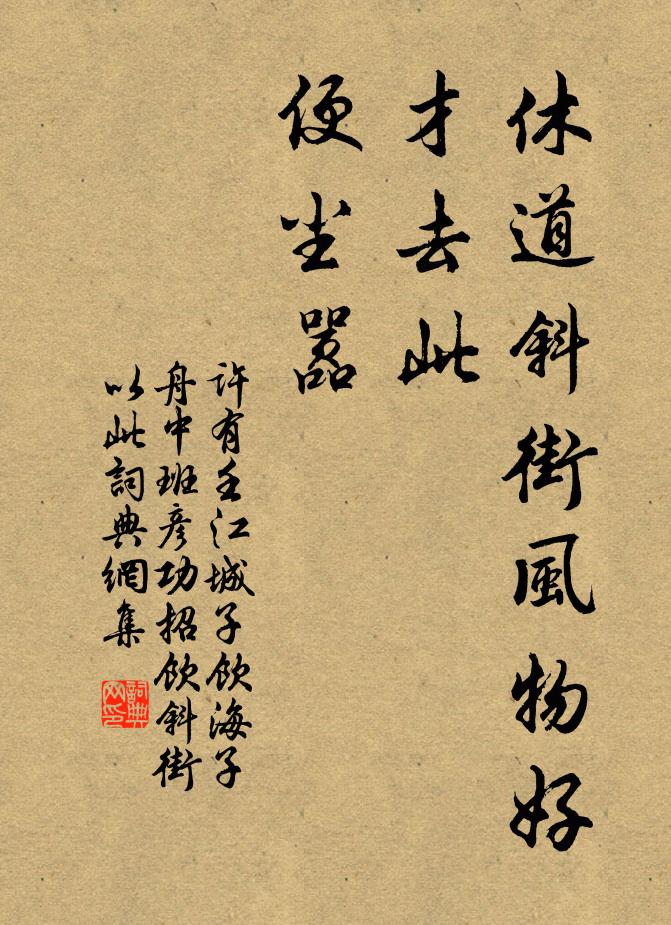 休道斜街風物好
才去此
便尘嚣
許有壬江城子飲海子
舟中班彥功招飲斜街
以此詞典網集
詞典
网印